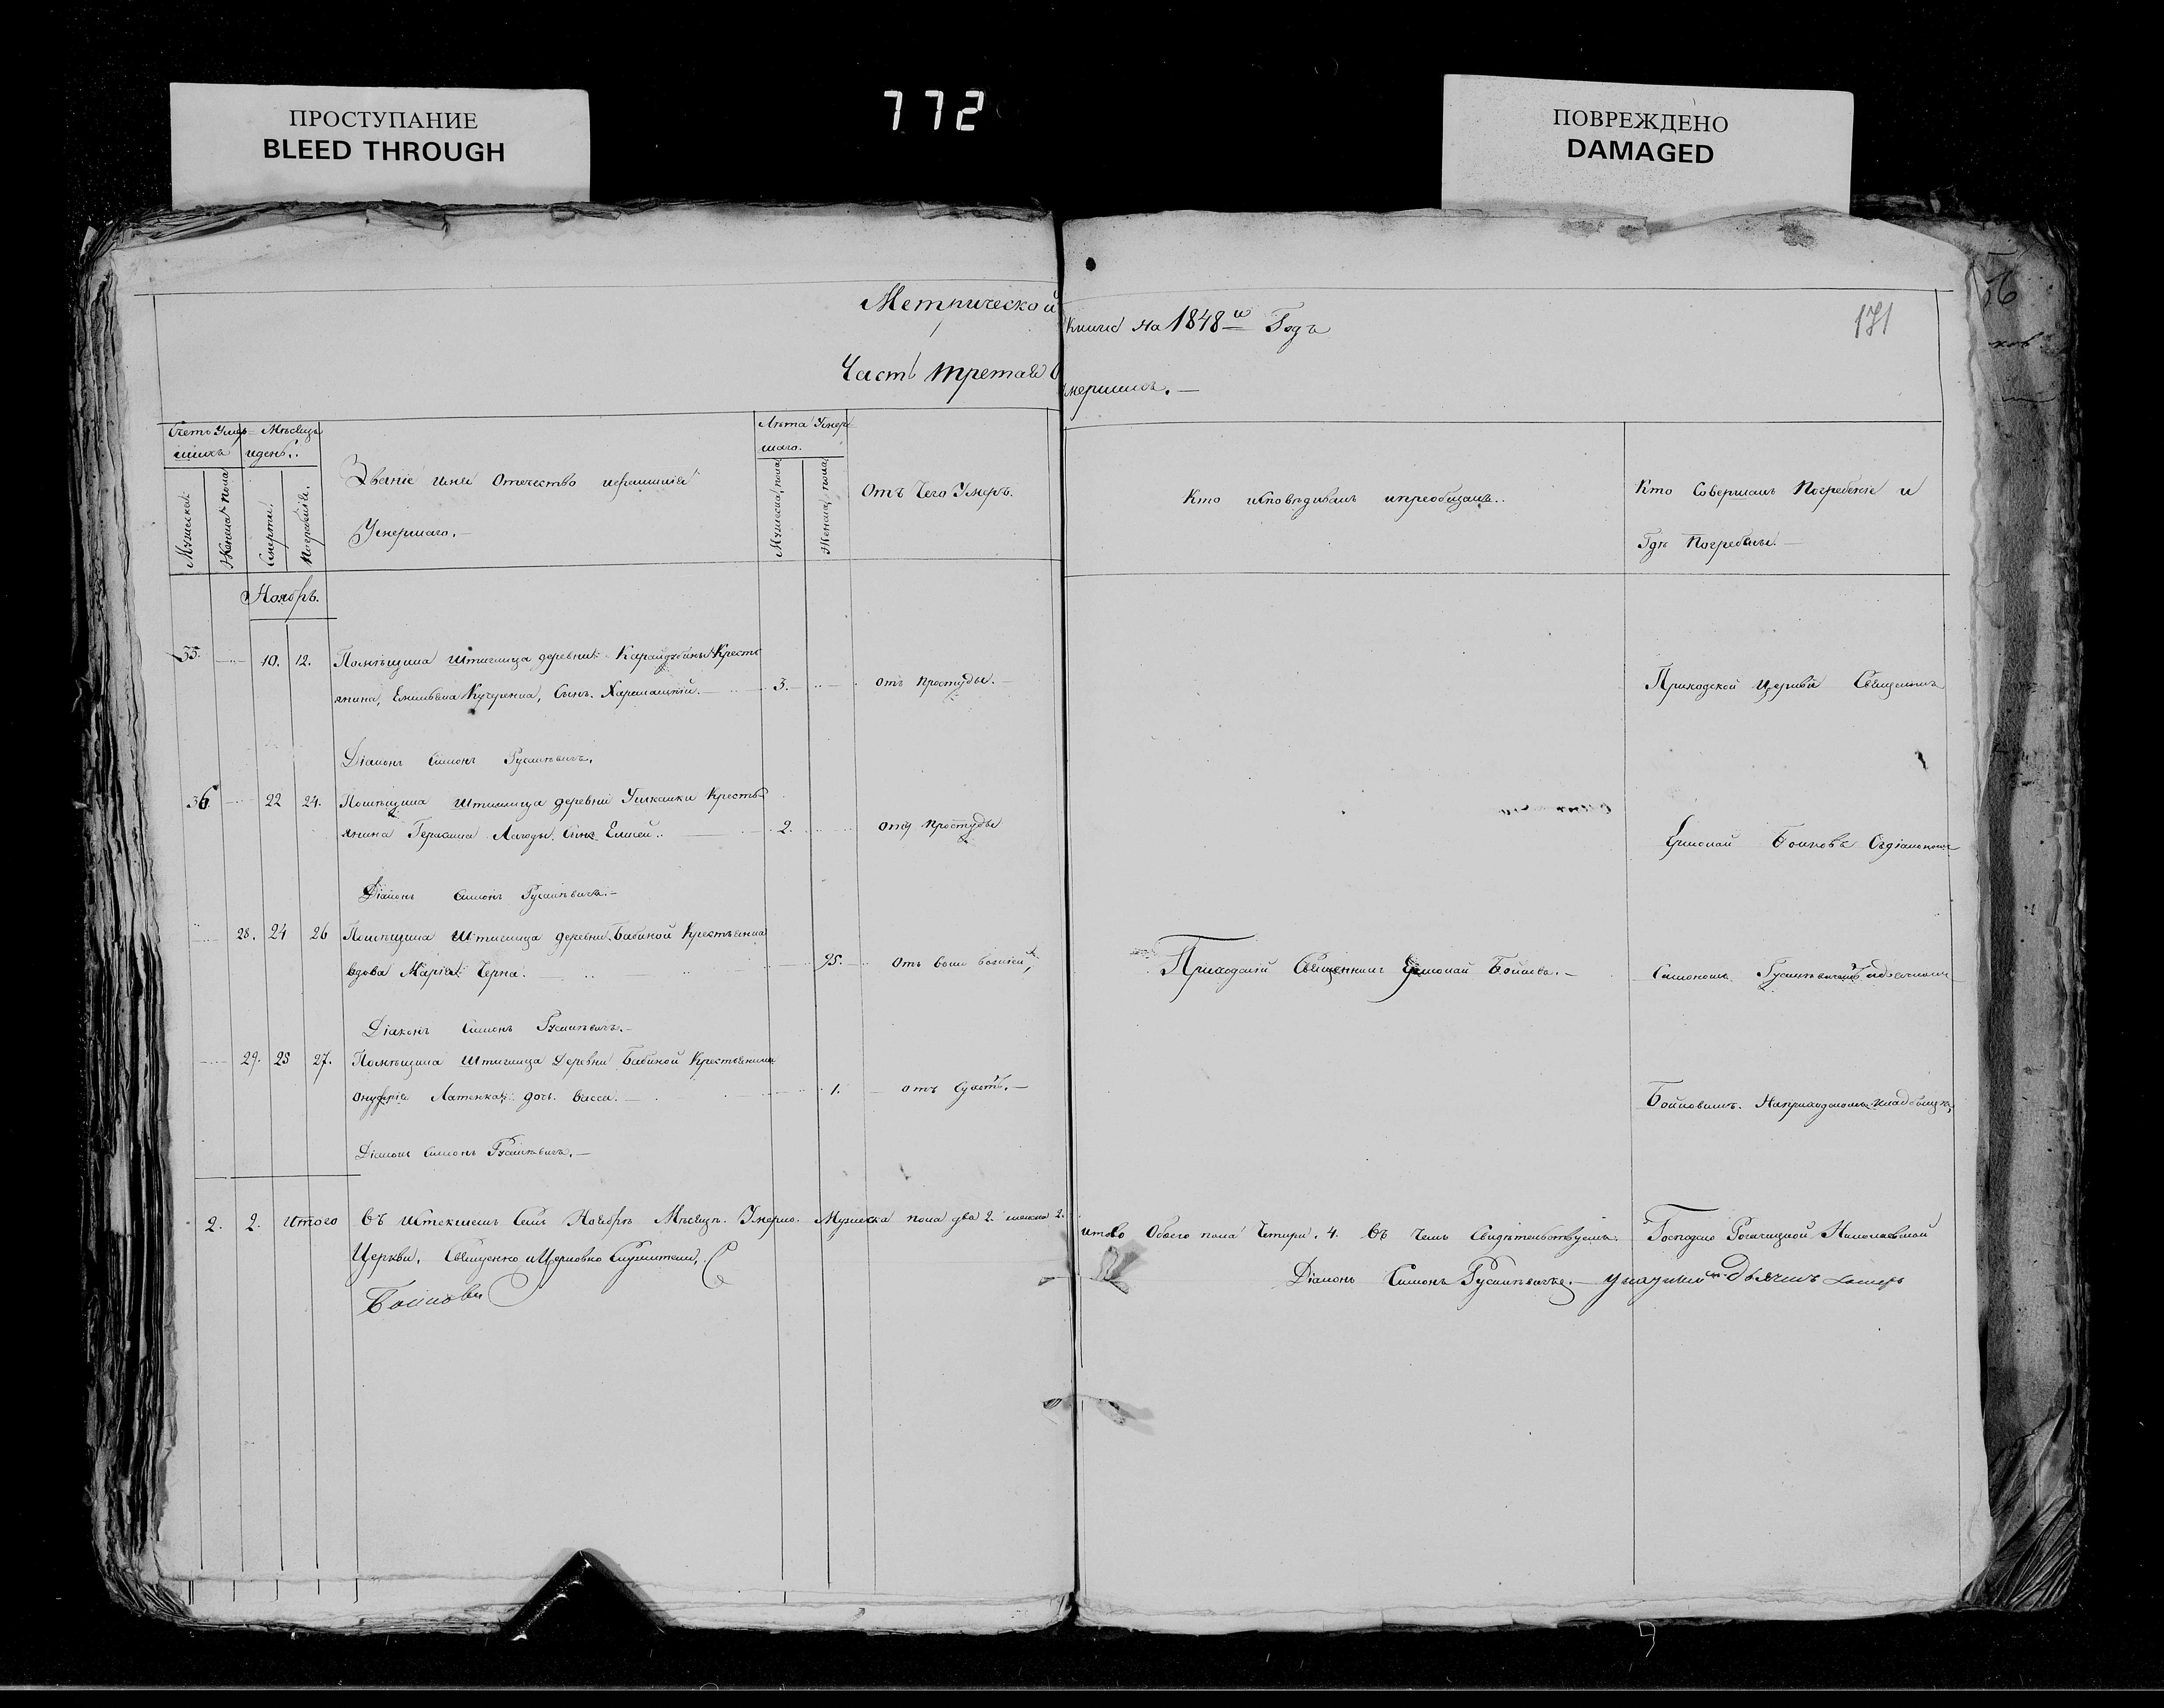 ПРОСТУПАНИЕ
BLEED THROUGH
772
ПОВРЕЖДЕНО
DAMAGED
Метрической Книги на 1848й Годъ
171
Часть третая О Умершихъ.
Счетъ Умершихъ
Мѣсяцъ и день.
Мужеска
Женска пола
Смерти.
Погребенія.
Званіе имя отечество и фамилія
Умершаго.
Лѣта Умершаго.
Мужеска пола
Женска пола
Отъ Чего Умеръ.
Кто исповѣдывалъ и пріобщалъ.
Кто Совершалъ Погребеніе и
Гдѣ Погребены.
Ноябрь.
35. 10. 12. Помѣщика Штиглица деревни Кресть
янина, Емельяна Кучеренка, Сынъ. 3. отъ простуды.
Приходской Церкви Священникъ
Діаконъ Симонъ Русаневичъ.
36 22 24. Помѣщика Штиглица деревни Кресть
янина Герасима Лагоды Сынъ Елисей. 2. отъ простуды
Ермолай Бойковъ Съ діакономъ
Діаконъ Симонъ Русаневичъ.
28. 24 26 Помѣщика Штиглица деревни Бабиной Крестьянка
вдова Марія Черна. 95. отъ воли божіей
Приходскій Священникъ Ермолай Бойковъ.
Симономъ Русаневичемъ
Діаконъ Симонъ Русаневичъ.
29. 25 27. Помѣщика Штиглица Деревни Бабиной Крестьянина
Онуфрія дочь Васса. 1. отъ Сухотъ.
Бойковимъ. На приходскомъ кладбищѣ,
Діаконъ Симонъ Русаневичъ.
2. 2. Итого Въ Истекшемъ Семъ Ноябрѣ Мѣсяцѣ Умерло Мужеска пола два 2. женска 2.
итого Обоего пола Четыри. 4. Въ Чемъ Свидѣтельствуемъ. Николаевской
Церкви, Священно и Церковно Служители,
Бойковъ
Діаконъ Симонъ Русаневичъ.